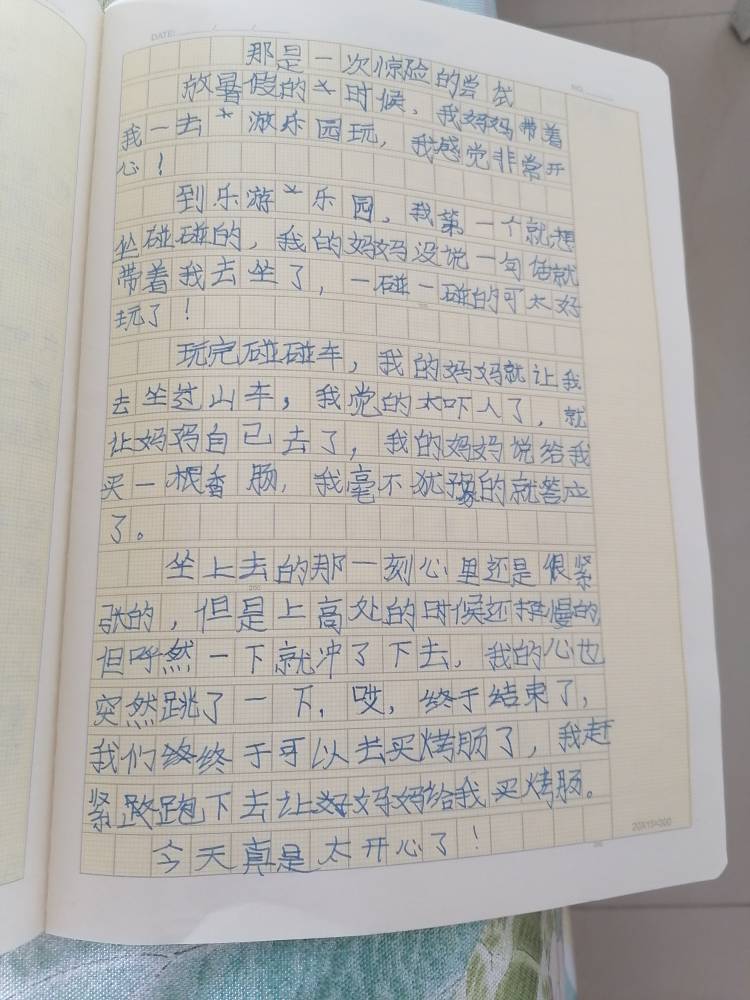 DATE: / /
NO.
那是一次惊险的尝试
放暑假的时候，我妈妈带着
我一去游乐园玩，我感觉非常开
心！
到乐游乐园，我第一个就想
坐碰碰的，我的妈妈没说一句话就
带着我去坐了，一碰一碰的可太好
玩了！
玩完碰碰车，我的妈妈就让我
去坐过山车，我觉的太吓人了，就
让妈妈自已去了，我的妈妈说给我
买一根香肠，我毫不犹豫的就答应
了。
坐上去的那一刻心里还是很紧
张的，但是上高处的时候还挺慢的
但呼然一下就冲了下去，我的心也
突然跳了一下，哎，终于结束了，
我们终终于可以去买烤肠了，我赶
紧跑下去让妈妈给我买烤肠。
今天真是太开心了！
20X15=300